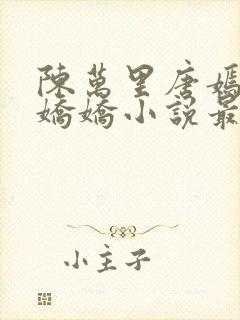 陳萬里唐嫣
嬌嬌小說最
小主子